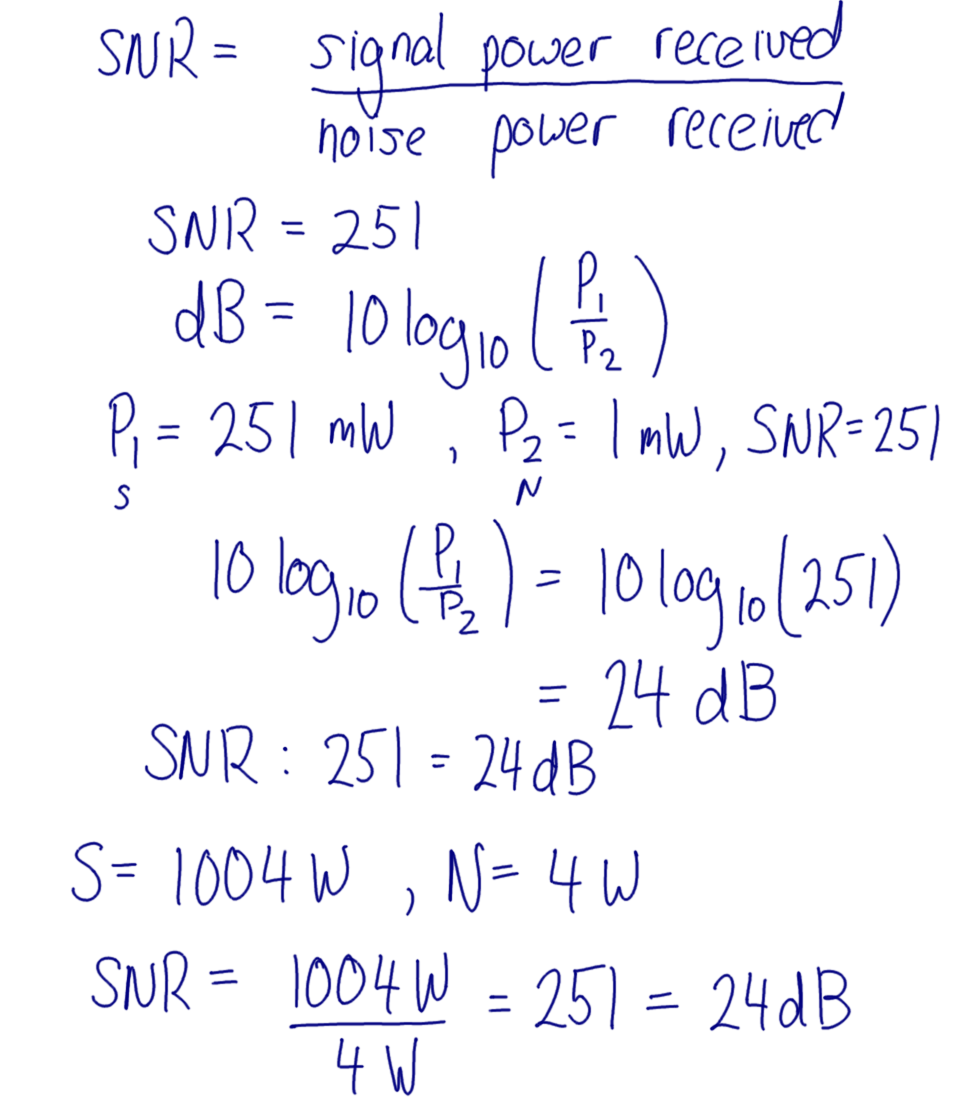 SNR = signal power received
noise power received
SNR = 251
dB = 10 log₁₀ (P₁/P₂)
P₁ = 251 mW , P₂ = 1 mW, SNR=251
S N
10 log₁₀ (P₁/P₂) = 10 log₁₀(251)
= 24 dB
SNR : 251 = 24dB
S= 1004 W , N= 4 W
SNR = 1004 W / 4 W = 251 = 24dB